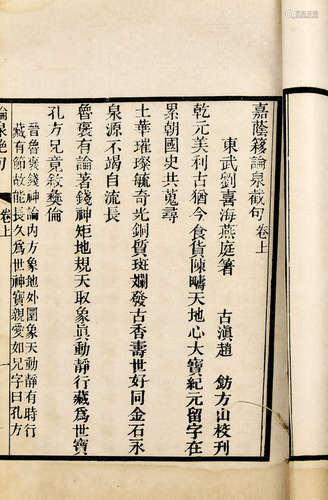 嘉蔭簃論泉截句 卷上
東武劉喜海燕庭著 古滇趙 鈁方山校刊
乾元美利古猶今食貨陳疇天地心大寶紀元留字在
累朝國史共蒐尋
土華璀璨毓奇光銅質斑斕發古香壽世好同金石永
泉源不竭自流長
魯褒有論著錢神矩地規天取象眞動靜行藏爲世寶
孔方兄竟敘彞倫
晉魯褒錢神論內方象地外圓象天動靜有時行
藏有節故能長久爲世神寶親愛如兄字曰孔方
侖泉絶句 卷上